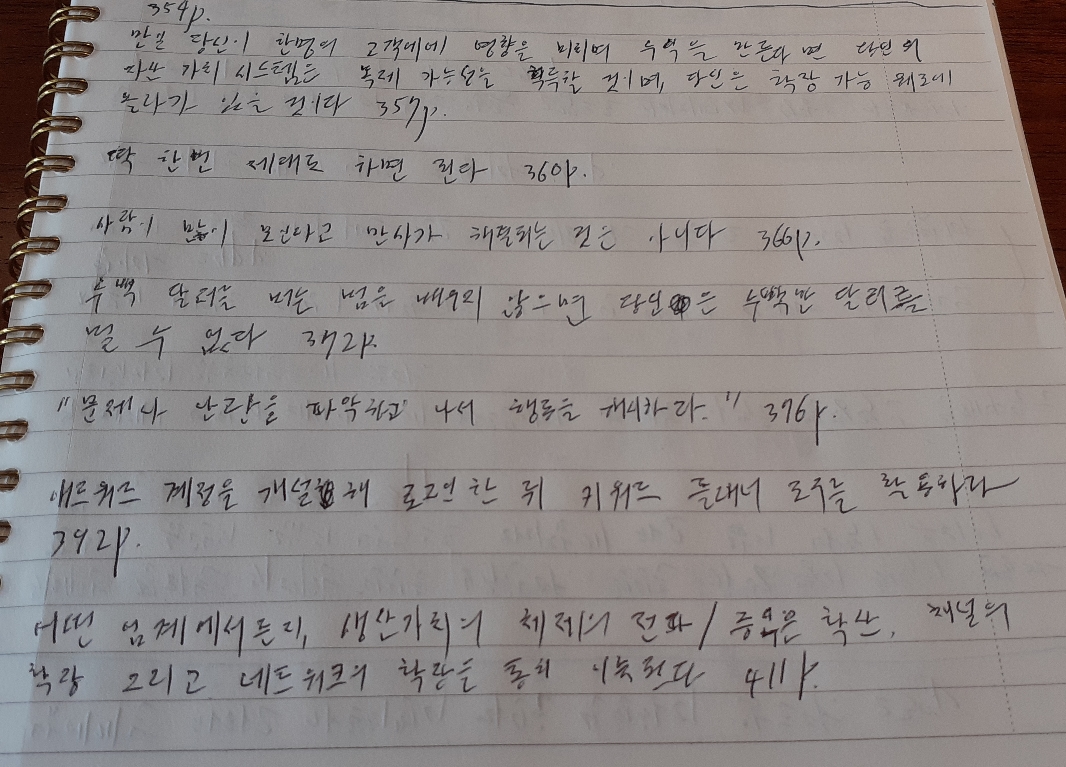 354p.
만일 당신이 한명의 고객에게 영향을 미치며 수익을 만든다 면 당신의
자산 가치 시스템은 복제 가능성을 획득할 것이며, 당신은 확장 가능 궤도에
올라가 있을 것이다 357p.
딱 한번 제대로 하면 된다 360p.
사람이 많이 모인다고 만사가 해결되는 것은 아니다 366p.
수백 달러를 버는 법을 배우지 않으면 당신은 수백만 달러를
벌 수 없다 372p.
"문제나 난관을 파악하고 나서 행동을 개시하라." 376p.
애드워즈 계정을 개설해 로그인 한 뒤 키워드 플래너 도구를 활용하라
392p.
어떤 업계에서든지, 생산가치의 체제의 전파/증식은 확산, 채널의
확장 그리고 네트워크의 확장을 통해 이룩된다 411p.